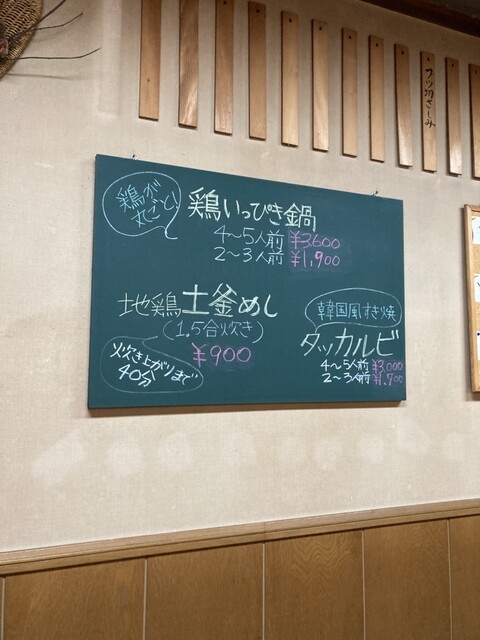 ブツ切さしみ
鶏が
丸ごと!
鶏いっぴき鍋
4〜5人前 ¥3,600
2〜3人前 ¥1,900
地鶏土釜めし
(1.5合炊き)
¥900
炊き上がりまで
40分
韓国風すき焼
タッカルビ
4〜5人前 ¥3,000
2〜3人前 ¥1,700